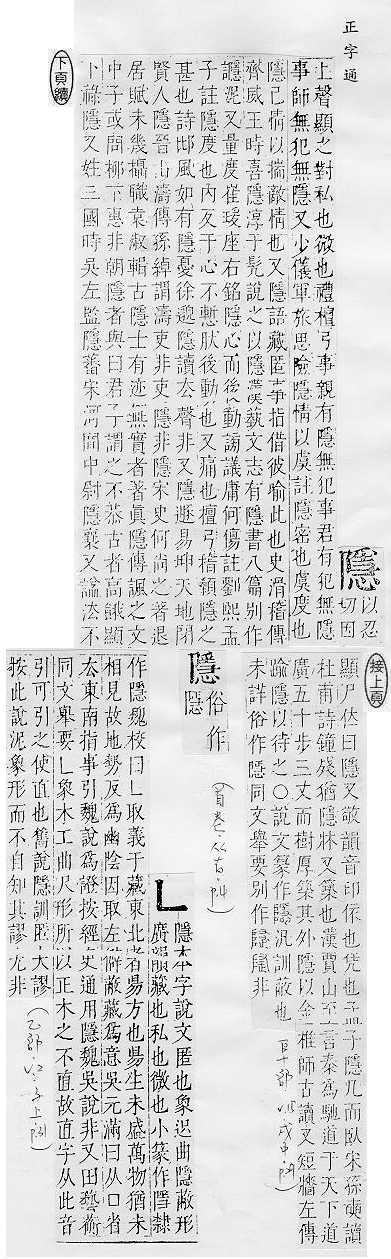 正字通
下頁續
隱 以忍切因
上聲顯之對私也微也禮檀弓事親有隱無犯事君有犯無隱
事師無犯無隱又少儀軍旅思險隱情以虞註隱密也虞度也
隱己情以揣敵情也又隱語藏匿事指借彼喻此也史滑稽傳
齊威王時喜隱淳于髡說之以隱漢蓺文志有隱書八篇別作
讔泥又量度崔瑗座右銘隱心而後動謗議庸何傷註劉熙孟
子註隱度也內反于心不慙肰後動也又痛也檀弓稽顙隱之
甚也詩邶風如有隱憂徐邈隱讀去聲非又隱遯易坤天地閉
賢人隱晉山濤傳孫綽謂濤吏非吏隱非隱宋史何尚之著退
居賦未幾攝職袁淑輯古隱士有迹無實者著眞隱傳諷之文
中子或問柳下惠非朝隱者與曰君子謂之不恭古者高餓顯
下祿隱又姓三國時吳左監隱蕃宋河間中尉隱褒又謚法不
接上頁
顯尸伏曰隱又敬韻音印依也凭也孟子隱几而臥宋孫奭讀
杜甫詩鐘殘猶隱牀又築也漢賈山至言秦為馳道于天下道
廣五十步三丈而樹厚築其外隱以金椎師古讀又短牆左傳
踰隱以待之○說文篆作隱汎訓蔽也
未詳俗作隠同文舉要別作非
隱 俗作隱
乚 隱本字說文匿也象迟曲隱蔽形
廣韻藏也私也微也小篆作隱隸
作隱魏校曰乚取義于藏東北者易方也易生未盛萬物猶未
相見故地勢反為幽陰因取左僻蔽藏為意吳元滿曰从口省
太東南指事引魏說為證按經史通用隱魏吳說非又田藝蘅
同文舉要乚象木工曲尺形所以正木之不直故直字从此音
引可引之使直也舊說隱訓匿大謬
按此說泥象形而不自知其謬尤非